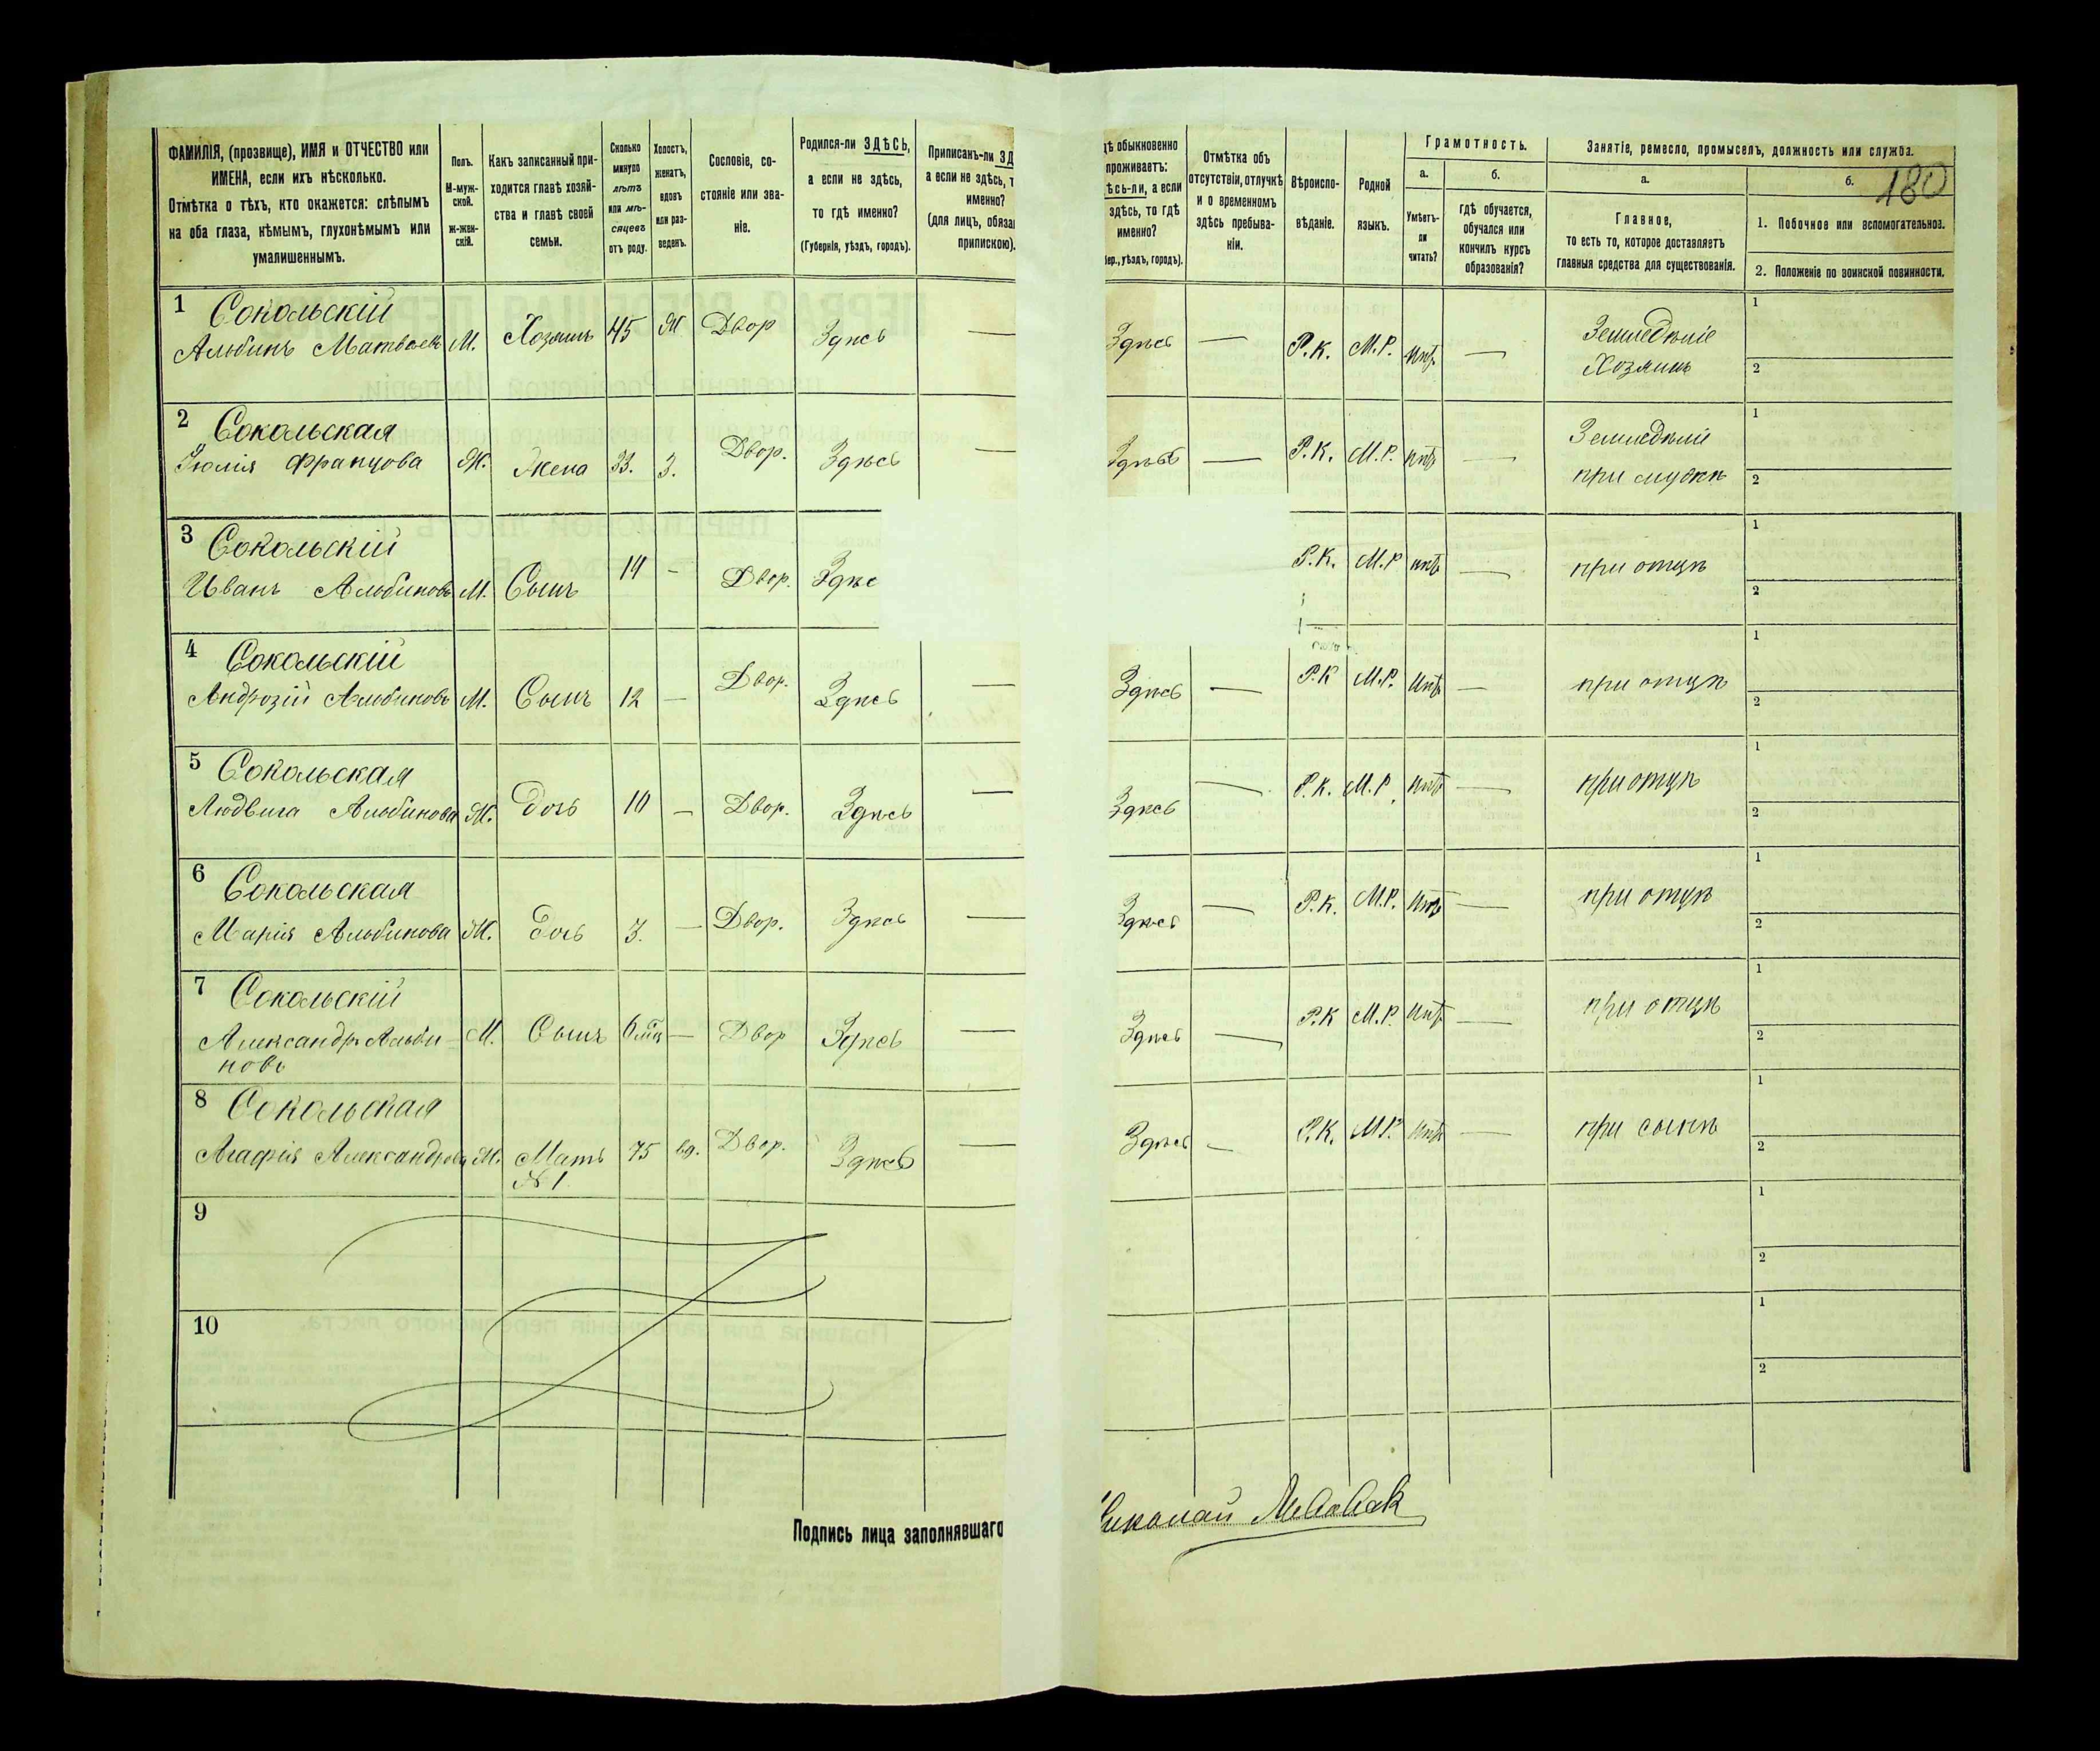 ФАМИЛІЯ, (прозвище), ИМЯ и ОТЧЕСТВО или
ИМЕНА, если ихъ нѣсколько.
Отмѣтка о тѣхъ, кто окажется: слѣпымъ
на оба глаза, нѣмымъ, глухонѣмымъ или
умалишеннымъ.
Полъ.
М-муж-
ской.
ж-жен-
скій.
Какъ записанный при-
ходится главѣ хозяй-
ства и главѣ своей
семьи.
Сколько
минуло
лѣтъ
или мѣ-
сяцевъ
отъ роду.
Холостъ,
женатъ,
вдовъ
или раз-
веденъ.
Сословіе, со-
стояніе или зва-
ніе.
Родился-ли ЗДѢСЬ,
а если не здѣсь,
то гдѣ именно?
(Губернія, уѣздъ, городъ).
Приписанъ-ли ЗД
а если не здѣсь, т
именно?
(для лицъ, обяза
припискою).
ѣ обыкновенно
проживаетъ:
ѣсь-ли, а если
здѣсь, то гдѣ
именно?
бер., уѣздъ, городъ).
Отмѣтка объ
отсутствіи, отлучкѣ
и о временномъ
здѣсь пребыва-
ніи.
Вѣроиспо-
вѣданіе.
Родной
языкъ.
Грамотность.
а.
Умѣетъ-
ли
читать?
б.
гдѣ обучается,
обучался или
кончилъ курсъ
образованія?
Занятіе, ремесло, промыселъ, должность или служба.
а.
Главное,
то есть то, которое доставляетъ
главныя средства для существованія.
б.
180
1. Побочное или вспомогательное.
2. Положеніе по воинской повинности.
1 Сокольскій
Альбинъ Матвѣевъ М. Хозяинъ 45 Ж Двор Здѣсь — Здѣсь — Р.К. М.Р. нѣтъ — Земледѣліе
Хозяинъ
1
2
2 Сокольская
Юлія Францова Ж. Жена 33. З. Двор. Здѣсь — Здѣсь — Р.К. М.Р. нѣтъ — Земледѣліе
при мужѣ
1
2
3 Сокольскій
Иванъ Альбиновъ М. Сынъ 14 – Двор. Здѣс Р.К. М.Р нѣтъ — при отцѣ
1
2
4 Сокольскій
Альбиновъ М. Сынъ 12 — Двор. Здѣсь — Здѣсь — Р.К М.Р. нѣтъ — при отцѣ
1
2
5 Сокольская
Людвига Альбинова Ж. Дочь 10 — Двор. Здѣсь — Здѣсь — Р.К. М.Р. нѣтъ — при отцѣ
1
2
6 Сокольская
Марія Альбинова Ж. Дочь 3. — Двор. Здѣсь — Здѣсь — Р.К. М.Р. нѣтъ — при отцѣ
1
2
7 Сокольскій
Александръ Альби-
новъ М. Сынъ 6 мѣц — Двор Здѣсь — Здѣсь — Р.К М.Р. нѣтъ — при отцѣ
1
2
8 Сокольская
Агафія Александрова Ж. Мать
№ 1 75 вд. Двор. Здѣсь — Здѣсь — Р.К. М.Р. нѣтъ — при сынѣ
1
2
9
1
2
10
1
2
Подпись лица заполнявшаго